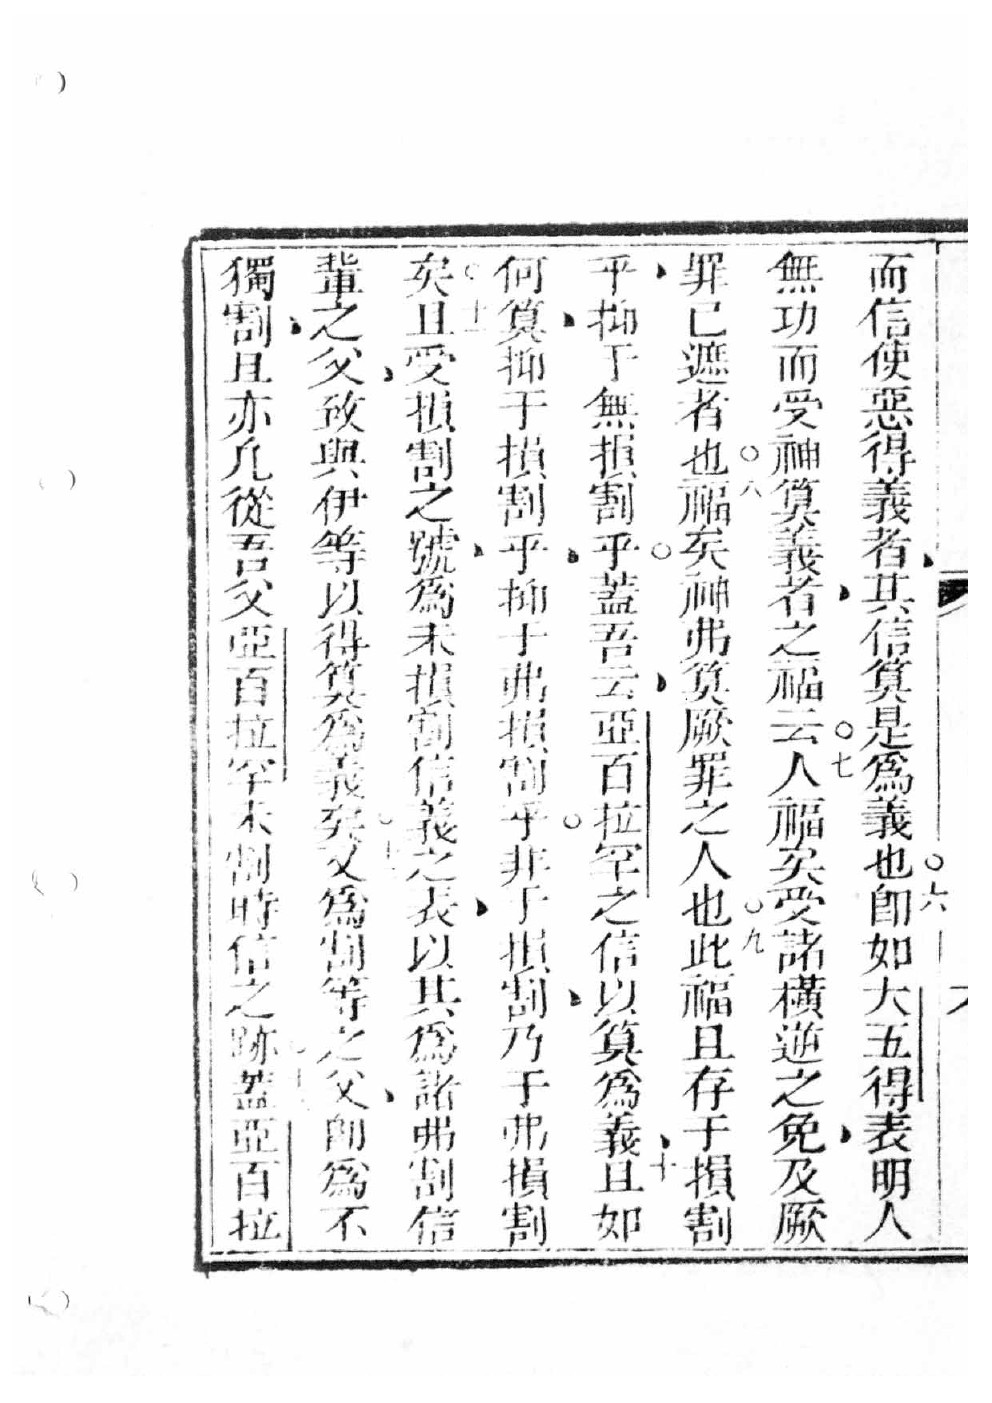 而信使惡得義者、其信算是為義也○六卽如大五得表明人
無功而受神算義者、之福云○七人福矣受諸橫逆之免、及厥
罪已遮者也○八福矣神弗算厥罪之人也○九此福且存于損割
乎、抑于無損割乎○蓋吾云、亞百拉罕之信以算為義、十且如
何算、抑于損割乎、抑于弗損割乎○非于損割、乃于弗損割
矣○十一且受損割之號、為未損割信義之表、以其為諸弗割信
輩之父、致與伊等以得算為義矣○十二又為割等之父、卽為不
獨割、且亦凡從吾父亞百拉罕未割時信之跡○十三蓋亞百拉